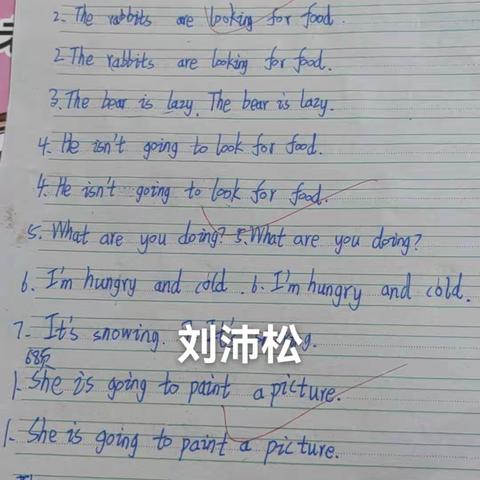 2. The rabbits are looking for food.
2. The rabbits are looking for food.
3. The bear is lazy. The bear is lazy.
4. He isn't going to look for food.
4. He isn't going to look for food.
5. What are you doing? 5. What are you doing?
6. I'm hungry and cold. 6. I'm hungry and cold.
7. It's snowing.
刘沛松
68页
1. She is going to paint a picture.
1. She is going to paint a picture.